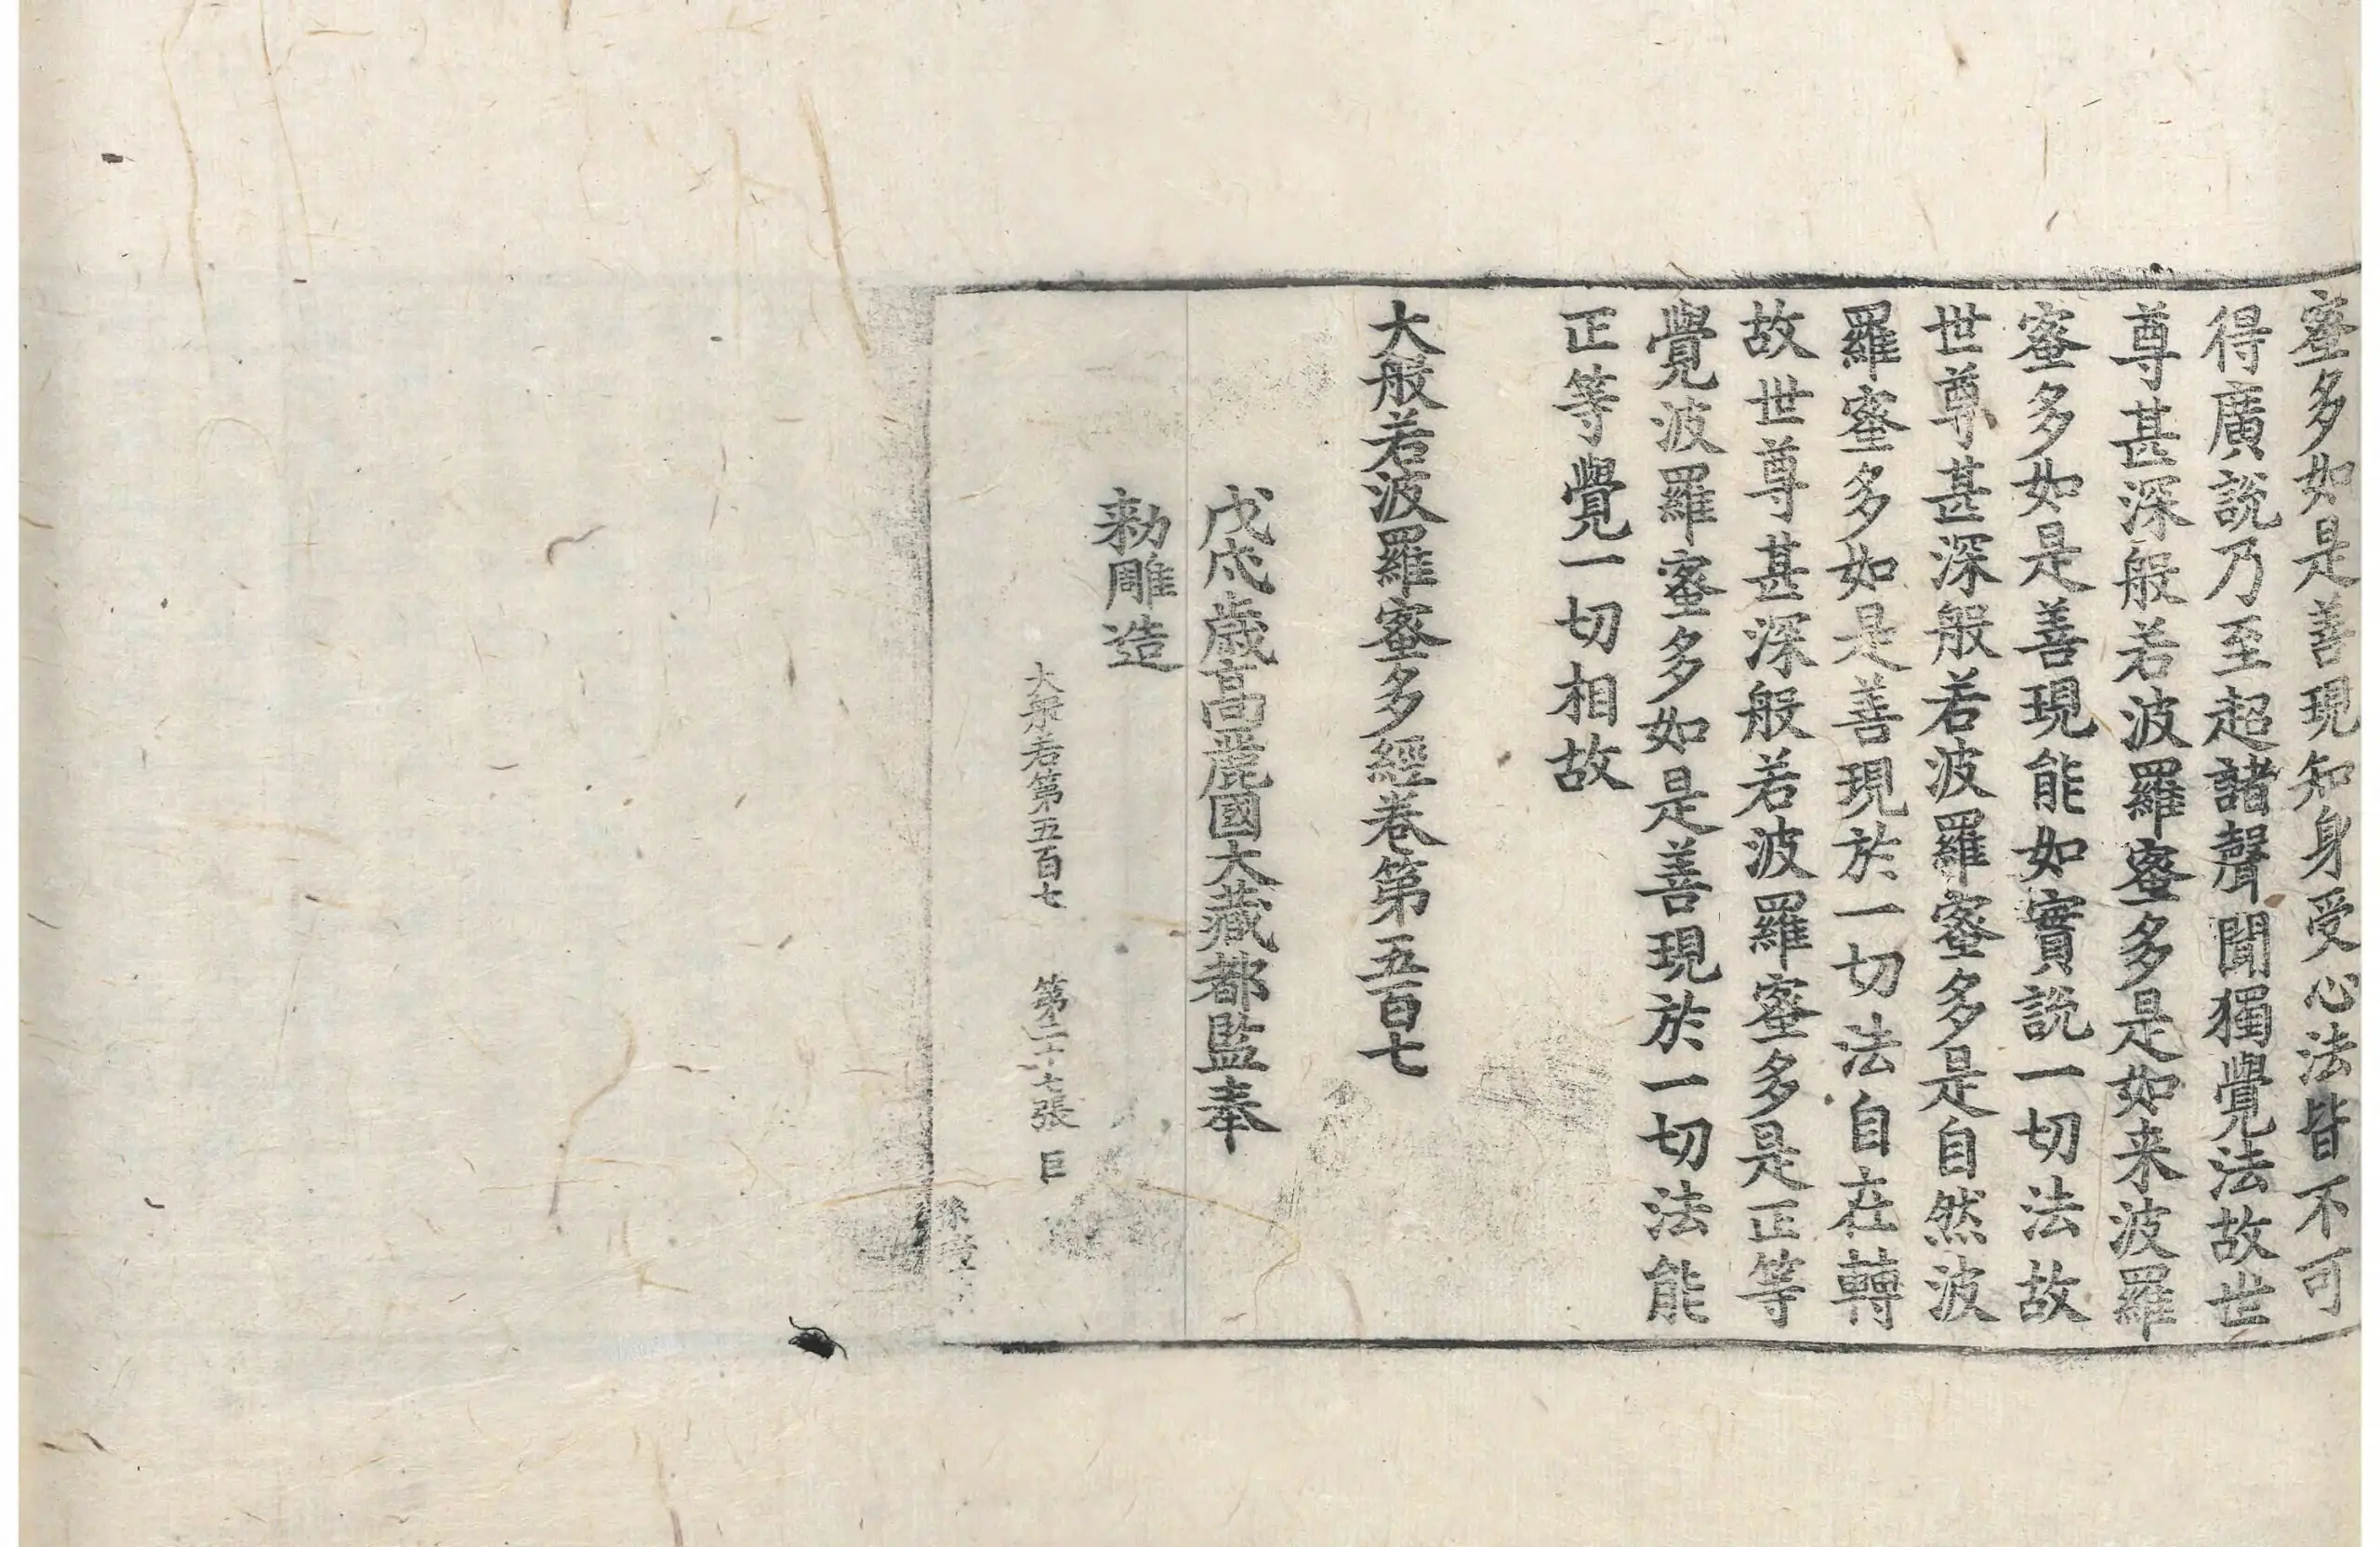 蜜多如是善現知身受心法皆不可
得廣說乃至超諸聲聞獨覺法故世
尊甚深般若波羅蜜多是如来波羅
蜜多如是善現能如實說一切法故
世尊甚深般若波羅蜜多是自然波
羅蜜多如是善現於一切法自在轉
故世尊甚深般若波羅蜜多是正等
覺波羅蜜多如是善現於一切法能
正等覺一切相故
大般若波羅蜜多經卷第五百七
戊戌歲高麗國大藏都監奉
勑雕造
大般若第五百七 第二十七張 巨